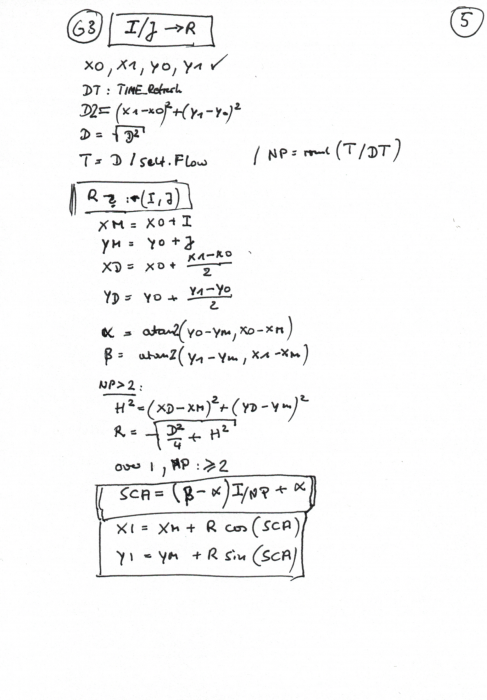 G3 I/J → R 5
X0, X1, Y0, Y1 ✓
DT : TIME_Refresh
D2 = (x1-x0)²+(y1-y0)²
D = √D²
T = D / self.Flow / NP = round (T/DT)
R ?: (I, J)
XM = X0 + I
YM = Y0 + J
XD = X0 + (X1-X0)/2
YD = Y0 + (Y1-Y0)/2
α = atan2(Y0-YM, X0-XM)
β = atan2(Y1-YM, X1-XM)
NP>2 :
H² = (XD-XM)²+(YD-YM)²
R = √(D²/4 + H²)
over 1, NP : ≥2
SCA = (β-α) I/NP + α
XI = XM + R cos (SCA)
YI = YM + R sin (SCA)